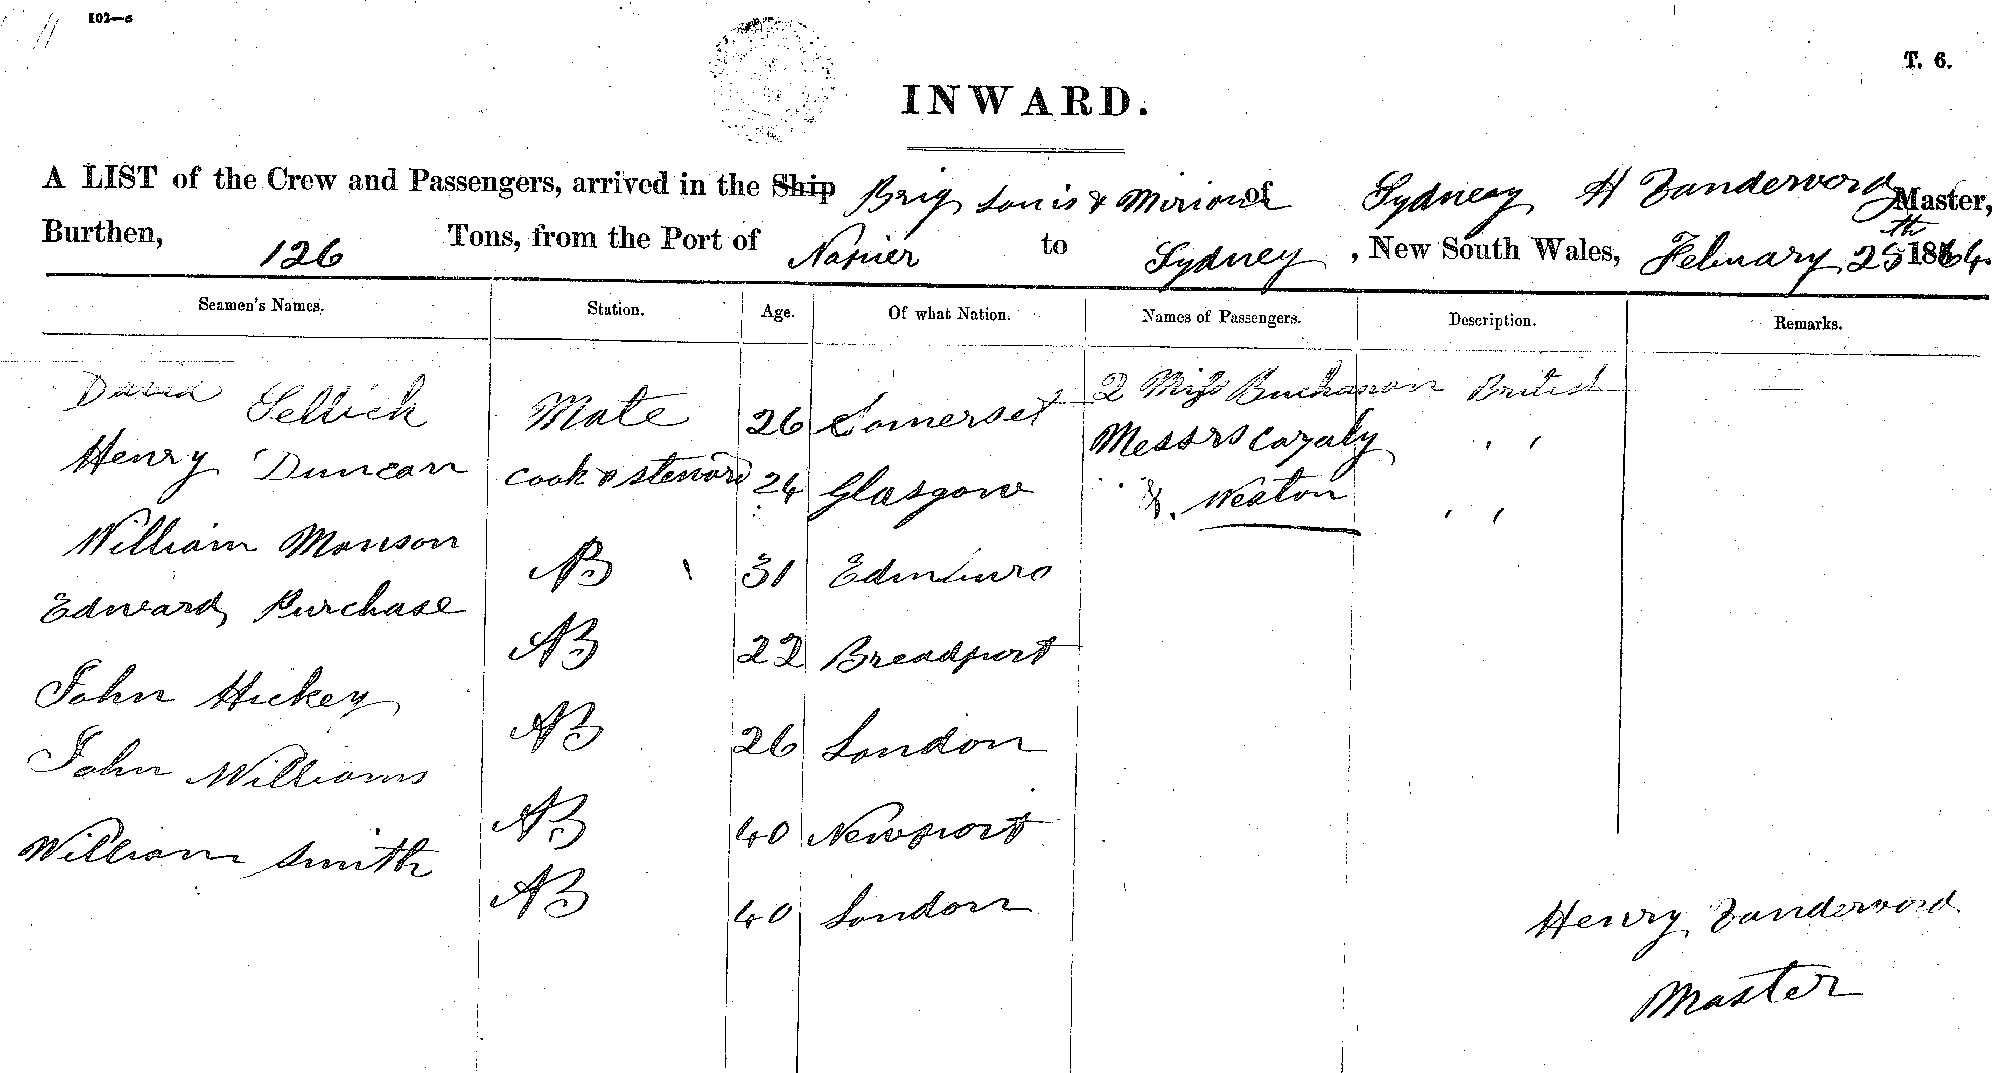 102—a
T. 6.
INWARD.
A LIST of the Crew and Passengers, arrived in the Ship Brig Louis & Miriam of Sydney H Vanderword Master,
Burthen, 126 Tons, from the Port of Napier to Sydney, New South Wales, February 25th 1864.
Seamen's Names. Station. Age. Of what Nation. Names of Passengers. Description. Remarks.
David Sellick Mate 26 Somerset 2 Miss Buchanan British —
Henry Duncan Cook & Steward 24 Glasgow Messrs Cazaly " "
& Weston " "
William Manson AB 31 Edinburo
Edward Purchase AB 22 Breadport
John Hickey AB 26 London
John Williams AB 40 Newport
William Smith AB 40 London
Henry Vanderword
Master